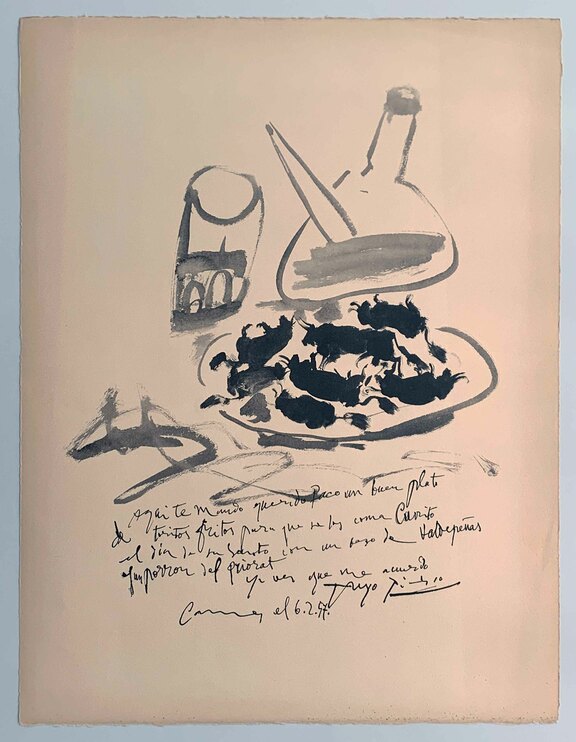 Aqui te mando querido Paco un buen plato
de toritos fritos para que se los coma Currito
el día de su Santo con un vaso de Valdepeñas
y un porron del priorat
Ya ves que me acuerdo
Tuyo Picasso
Cannes el 6.2.57.